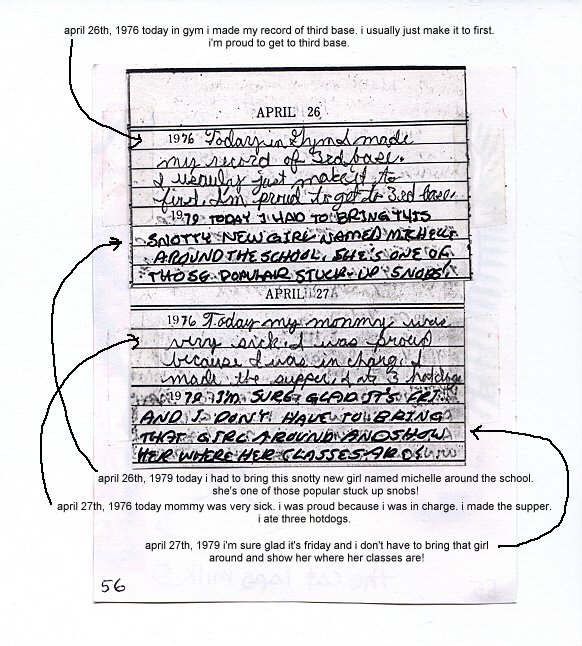 april 26th, 1976 today in gym i made my record of third base. i usually just make it to first.
i'm proud to get to third base.
APRIL 26
1976 Today in Gym I made
my record of 3rd base.
I usually just make it to
first. I'm proud to get to 3rd base.
1979 TODAY I HAD TO BRING THIS
SNOTTY NEW GIRL NAMED MICHELLE
AROUND THE SCHOOL. SHE'S ONE OF
THOSE POPULAR STUCK-UP SNOBS!
APRIL 27
1976 Today my mommy was
very sick. I was proud
because I was in charge. I
made the supper. I ate 3 hotdogs
1979 I'M SURE GLAD IT'S FRI.
AND I DON'T HAVE TO BRING
THAT GIRL AROUND AND SHOW
HER WHERE HER CLASSES ARE!
april 26th, 1979 today i had to bring this snotty new girl named michelle around the school.
she's one of those popular stuck up snobs!
april 27th, 1976 today mommy was very sick. i was proud because i was in charge. i made the supper.
i ate three hotdogs.
april 27th, 1979 i'm sure glad it's friday and i don't have to bring that girl
around and show her where her classes are!
56